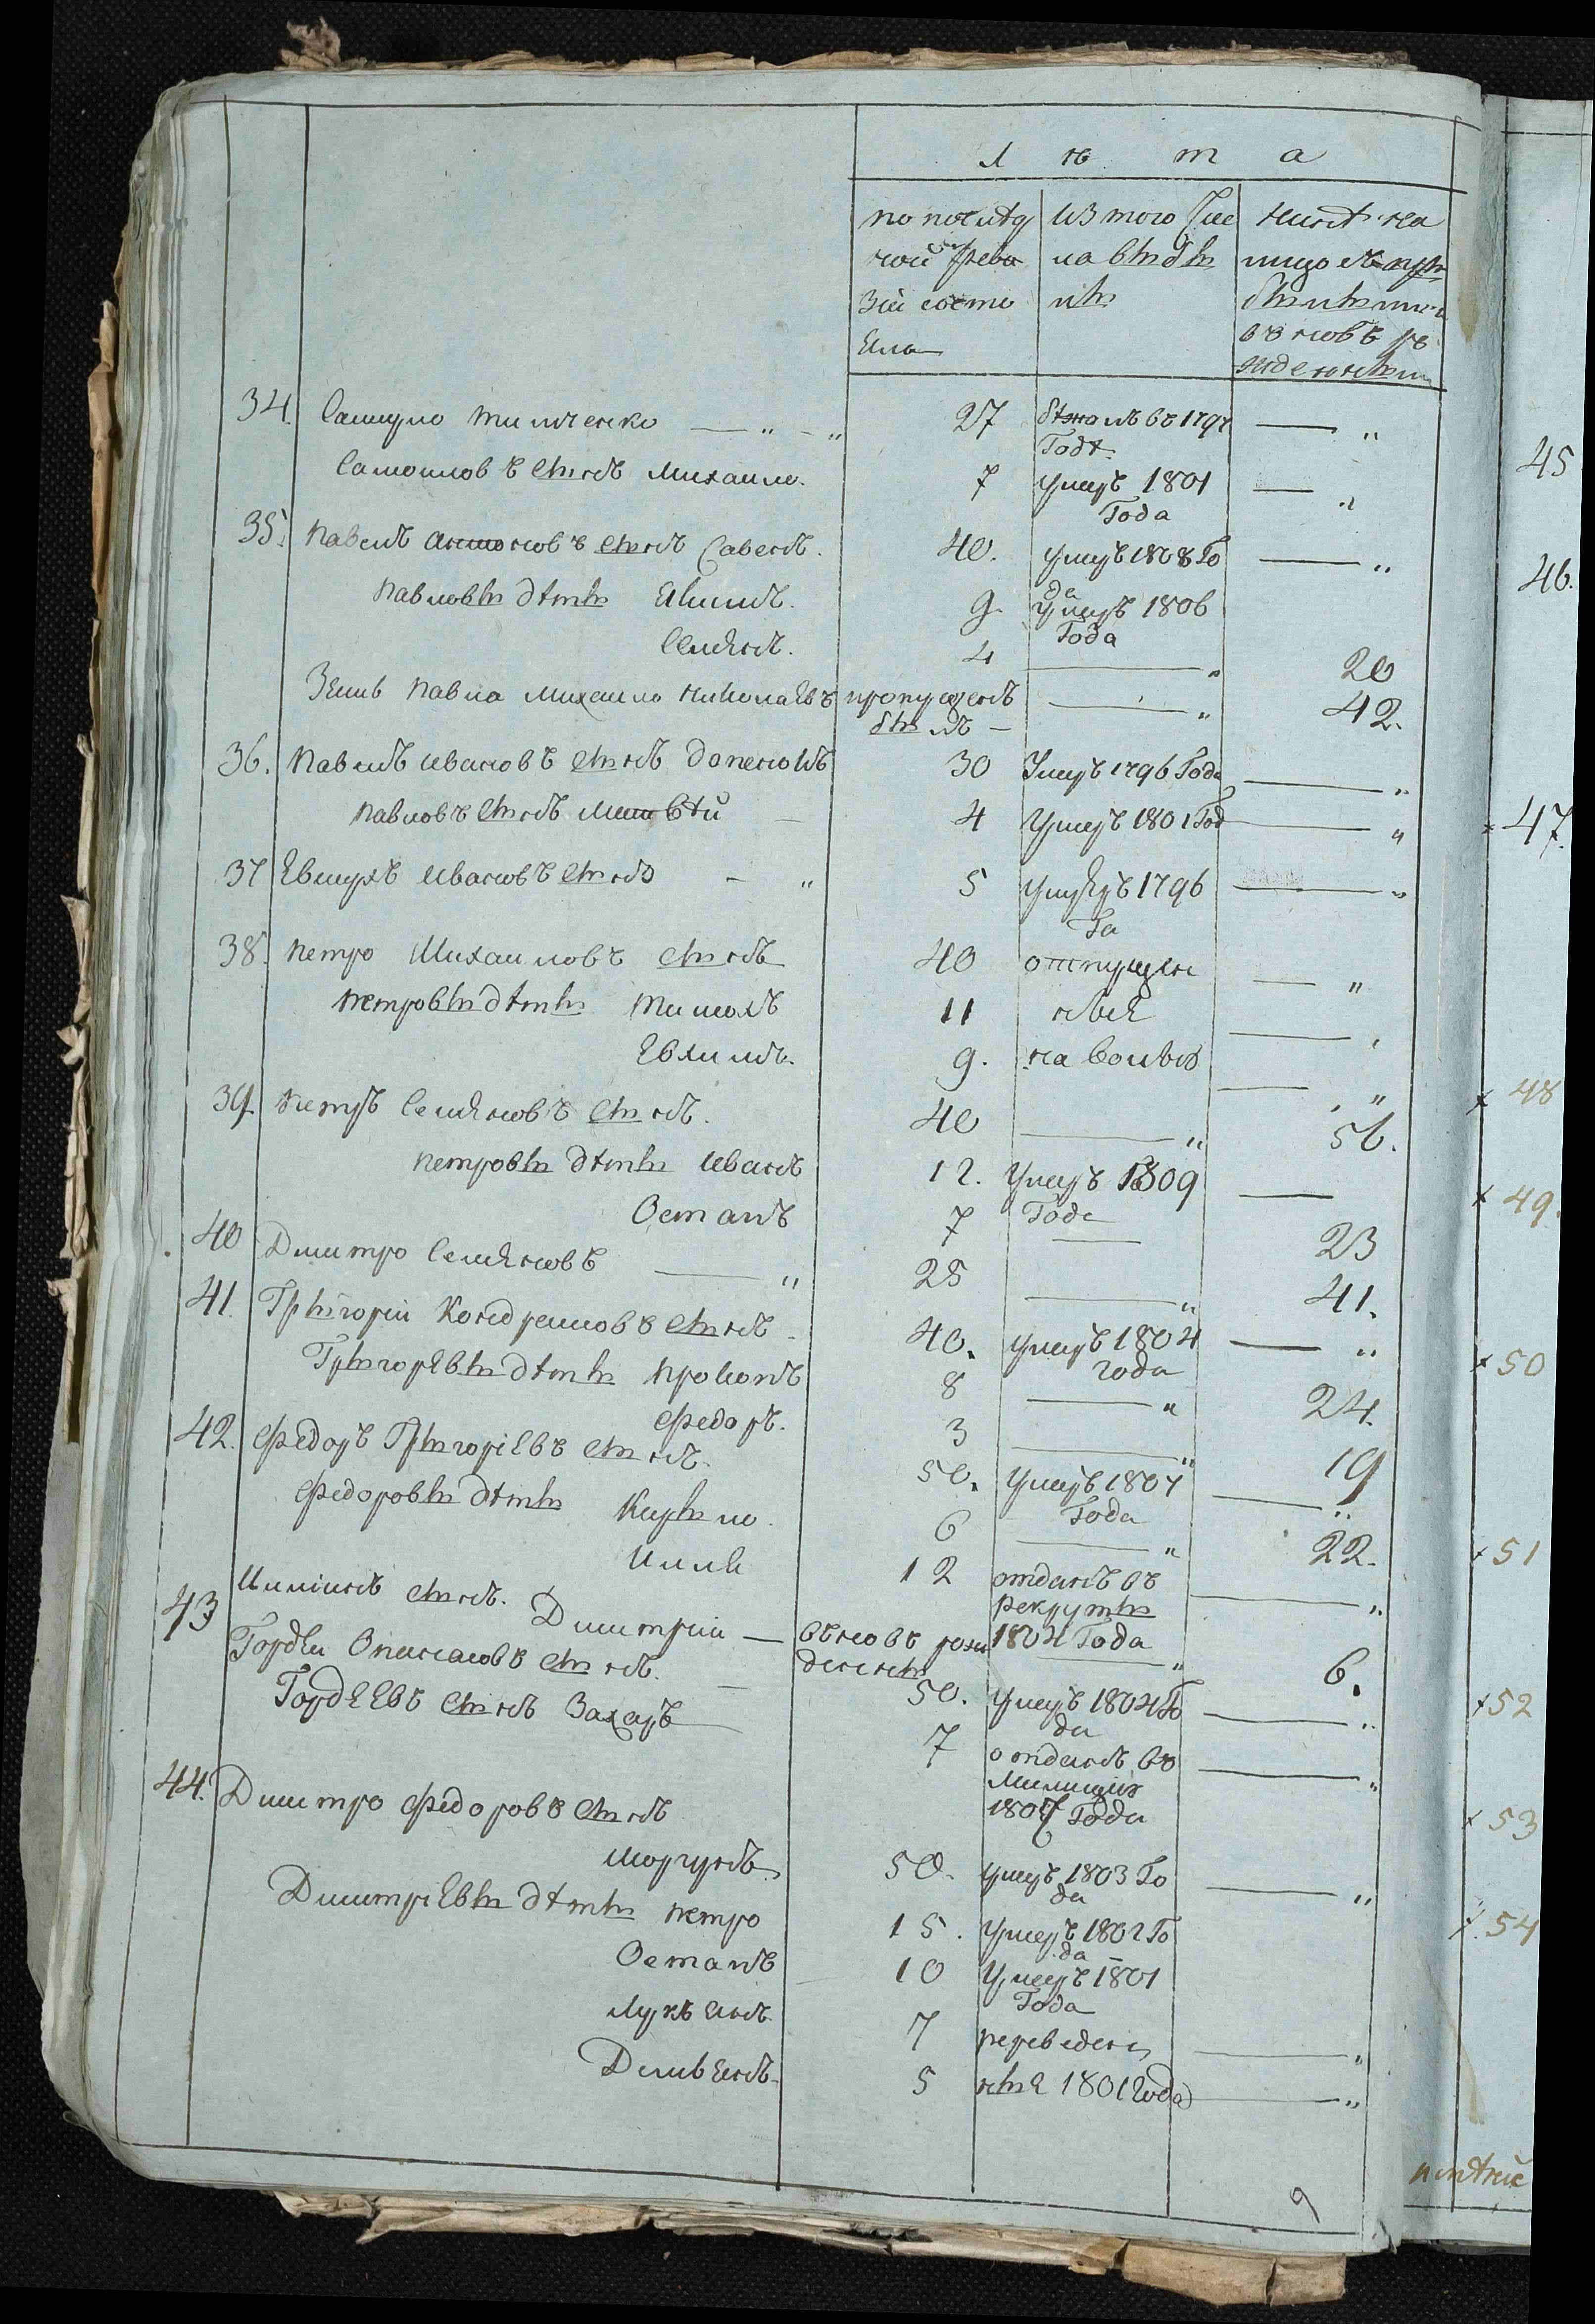 Л ѣ т а
по послѣд
ней реви
зіи состо
яла
изъ того чис
ла выбы
ло
нынѣ на
лицо съ при
былыми и
вновь ро
жденными
34. Самуйло Тимченко — „ — „ 27 бѣжалъ въ 1797 — „
Годѣ
Самойловъ сынъ Михайло. 7 умеръ 1801 — „
Года
35. Павелъ Антоновъ сынъ Савенъ. 40. умеръ 1808 Го — „
да
Павловы дѣти Якимъ. 9 умеръ 1806
Года
Семенъ. 4 — „ 20
Зять Павла Михайло Николаевъ пропущенъ — „ 42.
былъ —
36. Павелъ Ивановъ сынъ 30 Умеръ 1796 Года — „
Павловъ сынъ Матвѣй — 4 Умеръ 1801 Год — „
37 Евтухъ Ивановъ сынъ — „ 5 умеръ 1796 — „
Го
38. Петро Михайловъ сынъ 40 отпущен — „
Петровы дѣти Тимохъ 11 ные — „
Евхимъ. 9. на волю — „
39. Петръ Семеновъ сынъ. 40 — „ 56.
Петровы дѣти Иванъ 12. Умеръ 1809 —
Года
Остапъ 7 — 23
40 Дмитро Семеновъ — „ 25 — „ 41.
41. Григорій Кондратовъ сынъ 40. умеръ 1804 — „
года
Григорьевы дѣти Прокопъ 8 — „ 24.
Федоръ. 3 — „ 19
42. Федоръ Григоріевъ сынъ. 50. умеръ 1807 — „
Года
Федоровы дѣти Кирыло. 6 — „ 22.
Илля 12 отданъ въ — „
рекруты
1804 Года
Иллинъ сынъ. Дмитрій — вновь рож — „ 6.
денный
43 Гордѣй сынъ. — 50. умеръ 1804 Го — „
да
Гордѣевъ сынъ Захаръ 7 отданъ въ — „
Милицію
1807 Года
44. Дмитро Федоровъ сынъ
Моргунъ. 50. умеръ 1803 Го — „
да
Дмитріевы дѣти Петро 15. умеръ 1802 Го
да
Остапъ 10 Умеръ 1801
Года
Лукъянъ. 7 переведен — „
Демьянъ. 5 ные 1801 Года — „
9
45
46.
47.
48
49.
50
51
52
53
54